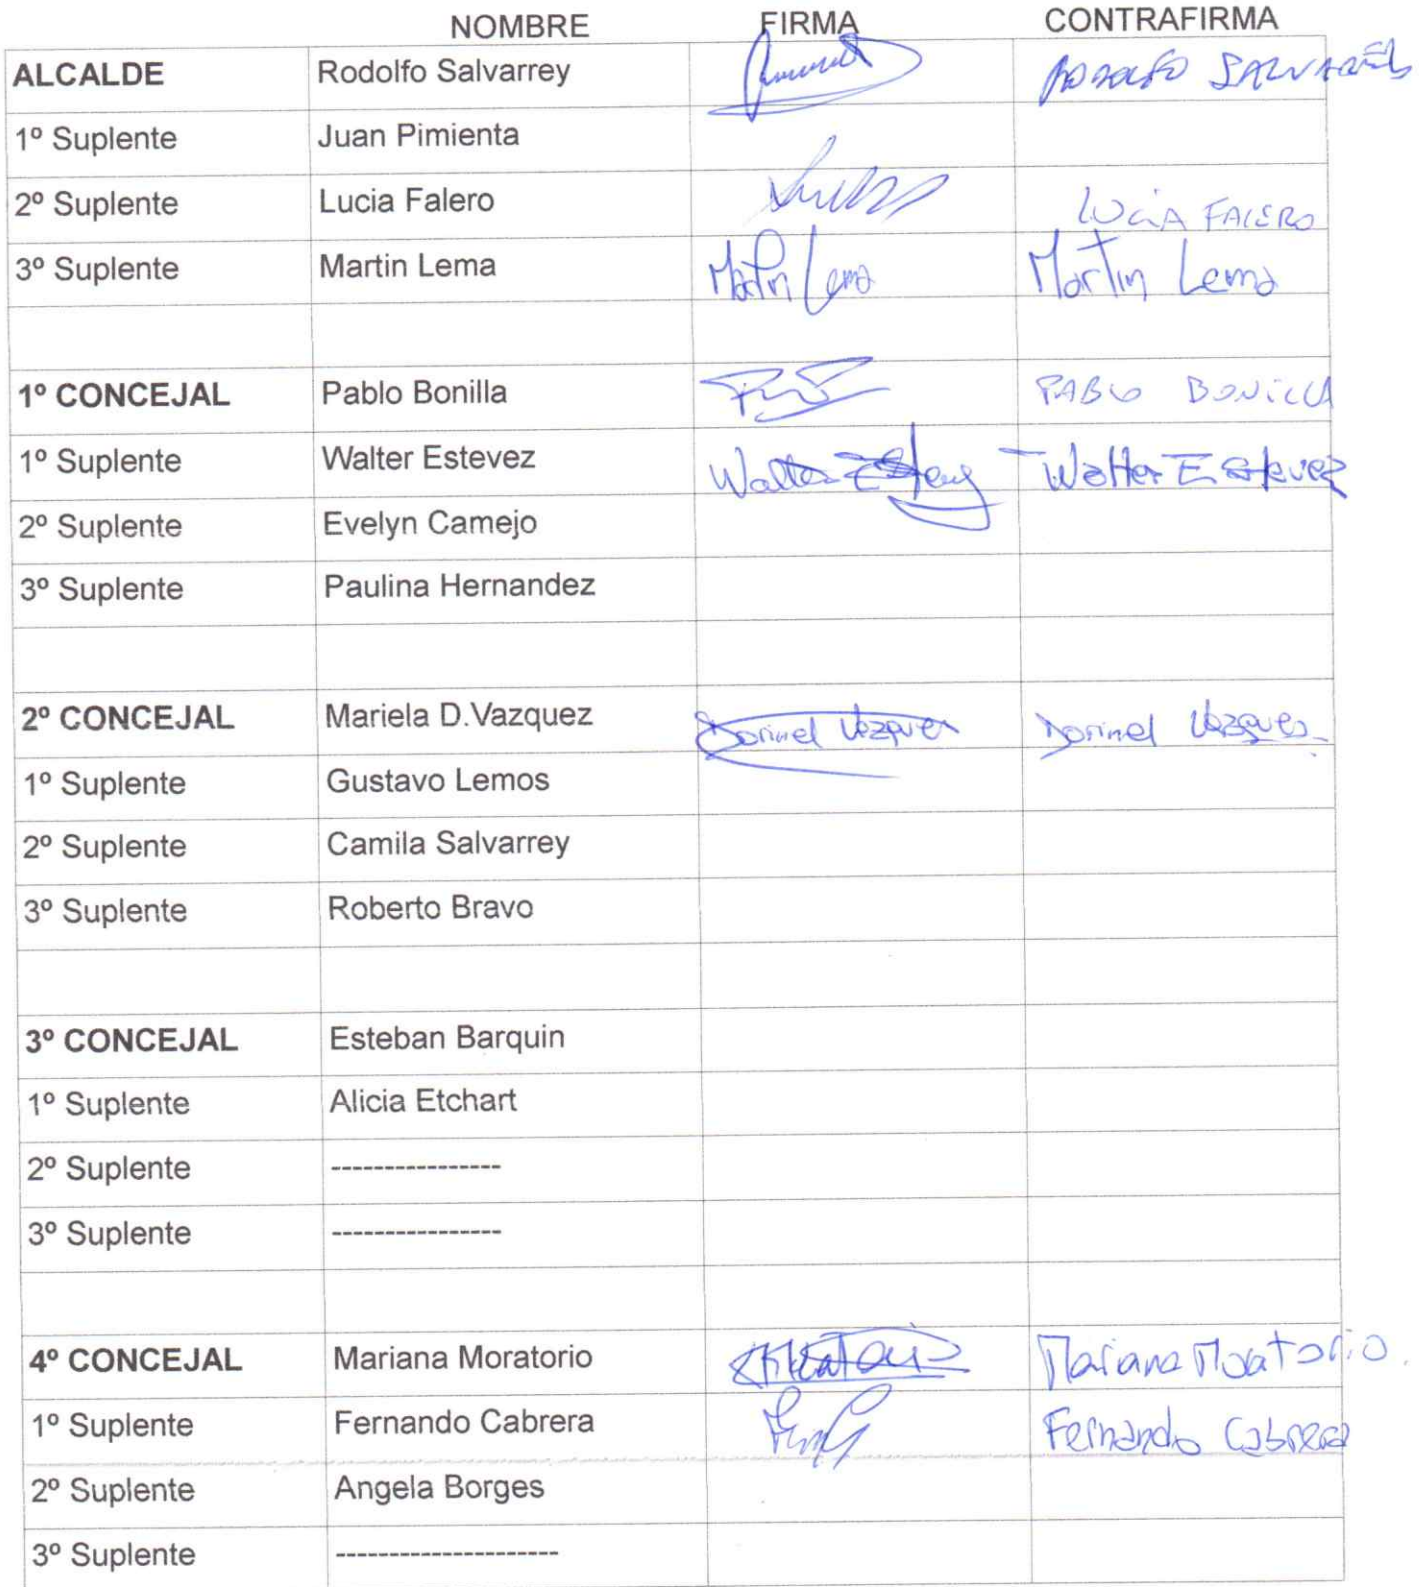 NOMBRE FIRMA CONTRAFIRMA
ALCALDE Rodolfo Salvarrey RODOLFO
1º Suplente Juan Pimienta
2º Suplente Lucia Falero LUCIA FALERO
3º Suplente Martin Lema Martin Lema Martin Lema
1º CONCEJAL Pablo Bonilla PABLO BONILLA
1º Suplente Walter Estevez Walter Walter Estevez
2º Suplente Evelyn Camejo
3º Suplente Paulina Hernandez
2º CONCEJAL Mariela D.Vazquez Dorinel Vazquez Dorinel Vazques
1º Suplente Gustavo Lemos
2º Suplente Camila Salvarrey
3º Suplente Roberto Bravo
3º CONCEJAL Esteban Barquin
1º Suplente Alicia Etchart
2º Suplente ----------------
3º Suplente ----------------
4º CONCEJAL Mariana Moratorio Mariana Moratorio.
1º Suplente Fernando Cabrera Fernando Cabrera
2º Suplente Angela Borges
3º Suplente ---------------------